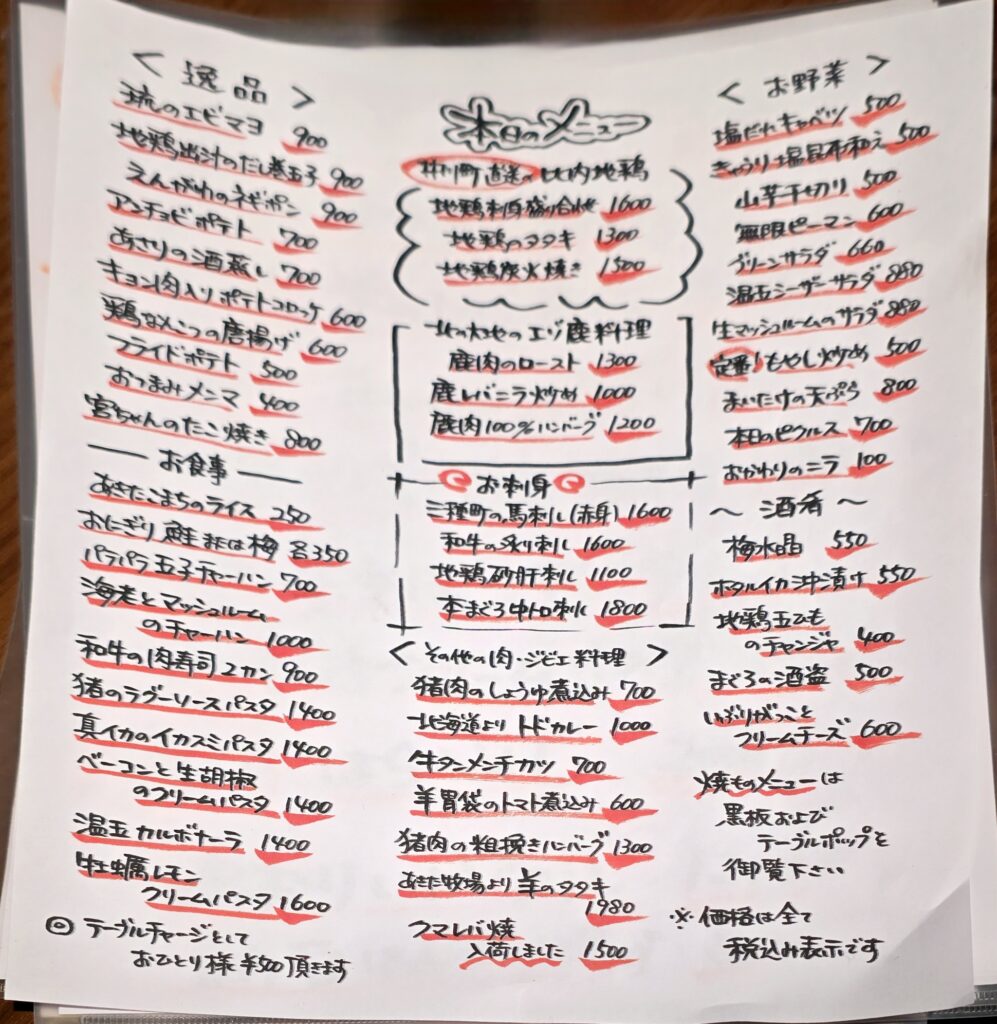 ＜逸品＞
琉のエビマヨ 900
地鶏出汁のだし巻玉子 900
えんがわのネギポン 900
アンチョビポテト 700
あさりの酒蒸し 700
キョン肉入りポテトコロッケ 600
鶏なんこつの唐揚げ 600
フライドポテト 500
おつまみメンマ 400
宮ちゃんのたこ焼き 800
お食事
あきたこまちのライス 250
おにぎり 鮭または梅 各350
パラパラ玉子チャーハン 700
海老とマッシュルーム
のチャーハン 1000
和牛の肉寿司2カン 900
猪のラグーソースパスタ 1400
真イカのイカスミパスタ 1400
ベーコンと生胡椒
のクリームパスタ 1400
温玉カルボナーラ 1400
牡蠣レモン
クリームパスタ 1600
◎ テーブルチャージとして
おひとり様¥500頂きます
本日のメニュー
町直送の比内地鶏
地鶏刺身盛り合せ 1600
地鶏のタタキ 1300
地鶏炭火焼き 1500
北の大地のエゾ鹿料理
鹿肉のロースト 1300
鹿レバニラ炒め 1000
鹿肉100%ハンバーグ 1200
お刺身
三種町の馬刺し(赤身) 1600
和牛の炙り刺し 1600
地鶏砂肝刺し 1100
本まぐろ中トロ刺し 1800
＜その他の肉・ジビエ料理＞
猪肉のしょうゆ煮込み 700
北海道よりトドカレー 1000
牛タンメンチカツ 700
羊胃袋のトマト煮込み 600
猪肉の粗挽きハンバーグ 1300
あきた牧場より羊のタタキ
1980
クマレバ焼
入荷しました 1500
＜お野菜＞
塩だれキャベツ 500
きゅうり塩昆布和え 500
山芋千切り 500
無限ピーマン 600
グリーンサラダ 660
温玉シーザーサラダ 880
生マッシュルームのサラダ 880
定番！もやし炒め 500
まいたけの天ぷら 800
本日のピクルス 700
おかわりのニラ 100
～酒肴～
梅水晶 550
ホタルイカ沖漬け 550
地鶏玉ひも
のチャンジャ 400
まぐろの酒盗 500
いぶりがっこと
クリームチーズ 600
焼ものメニューは
黒板および
テーブルポップを
御覧下さい
※価格は全て
税込み表示です